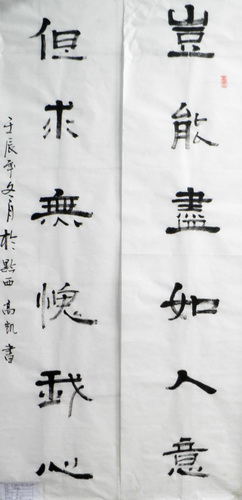 豈能盡如人意
但求無愧我心
壬辰年冬月於黔西高凱書